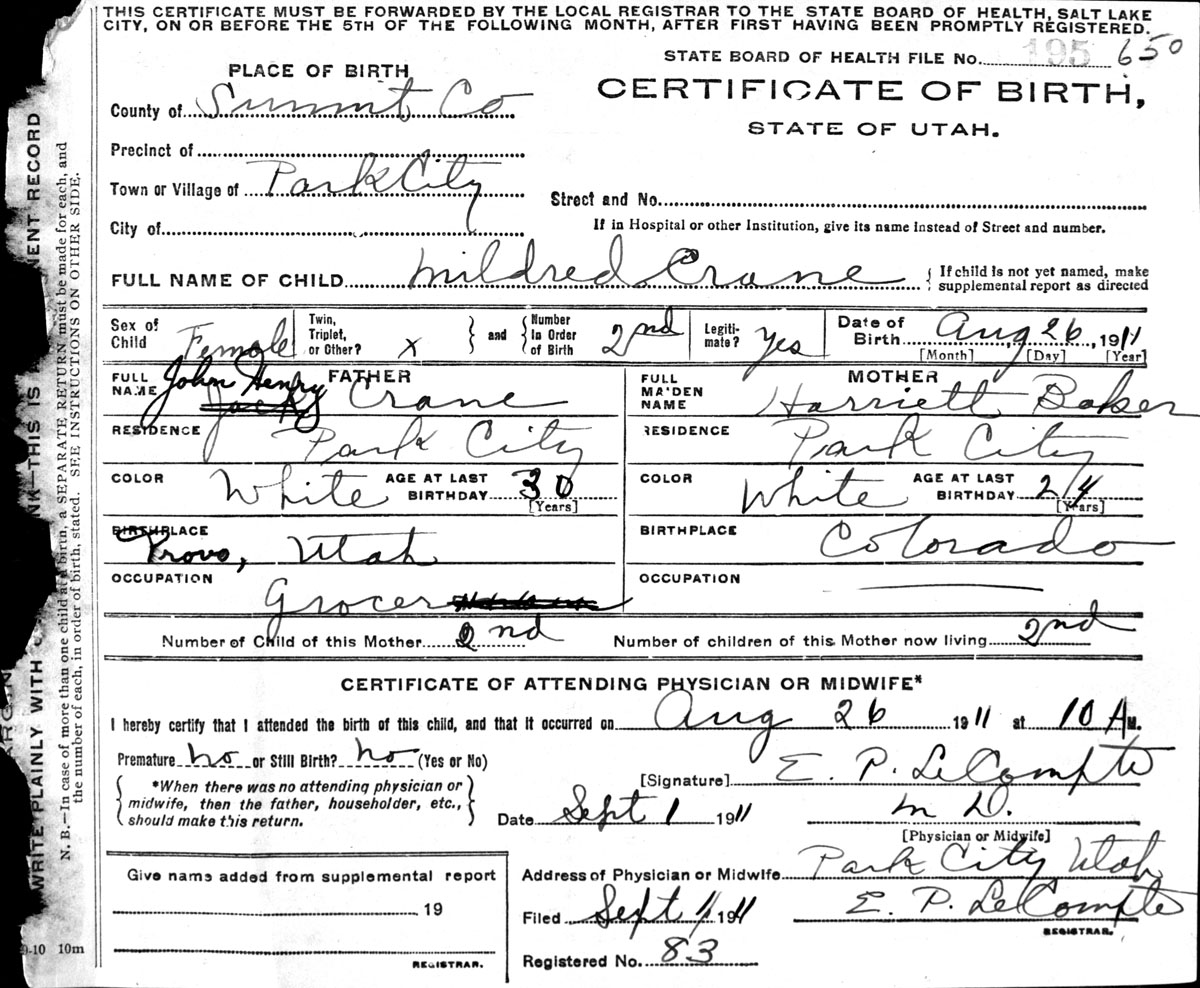 THIS CERTIFICATE MUST BE FORWARDED BY THE LOCAL REGISTRAR TO THE STATE BOARD OF HEALTH, SALT LAKE
CITY, ON OR BEFORE THE 5TH OF THE FOLLOWING MONTH, AFTER FIRST HAVING BEEN PROMPTLY REGISTERED.
STATE BOARD OF HEALTH FILE No. 195 650
PLACE OF BIRTH
CERTIFICATE OF BIRTH,
STATE OF UTAH.
County of Summit Co
Precinct of
Town or Village of Park City
Street and No.
City of
If in Hospital or other Institution, give its name instead of Street and number.
FULL NAME OF CHILD Mildred Crane { If child is not yet named, make supplemental report as directed
Sex of Child Female Twin, Triplet, or Other? x } and { Number In Order of Birth 2nd Legitimate? Yes Date of Birth Aug 26, 1911
[Month] [Day] [Year]
FATHER
FULL NAME John Henry Jack Crane
MOTHER
FULL MAIDEN NAME Harriett Baker
RESIDENCE Park City
RESIDENCE Park City
COLOR White AGE AT LAST BIRTHDAY 30 [Years]
COLOR White AGE AT LAST BIRTHDAY 24 [Years]
BIRTHPLACE Provo, Utah
BIRTHPLACE Colorado
OCCUPATION Grocer
OCCUPATION
Number of Child of this Mother 2nd Number of children of this Mother now living 2nd
CERTIFICATE OF ATTENDING PHYSICIAN OR MIDWIFE*
I hereby certify that I attended the birth of this child, and that it occurred on Aug 26 1911 at 10 A M.
Premature No or Still Birth? No (Yes or No)
[Signature] E. P. LeCompte
{ *When there was no attending physician or
midwife, then the father, householder, etc.,
should make this return. }
Date Sept 1 1911 M D.
[Physician or Midwife]
Address of Physician or Midwife Park City Utah
Filed Sept 1, 1911 E. P. LeCompte
REGISTRAR.
Registered No. 83
Give name added from supplemental report
19
REGISTRAR.
9-10 10m
ARGIN
WRITE PLAINLY WITH NK—THIS IS A ENT RECORD
N. B.—In case of more than one child at a birth, a SEPARATE RETURN must be made for each, and
the number of each, in order of birth, stated. SEE INSTRUCTIONS ON OTHER SIDE.